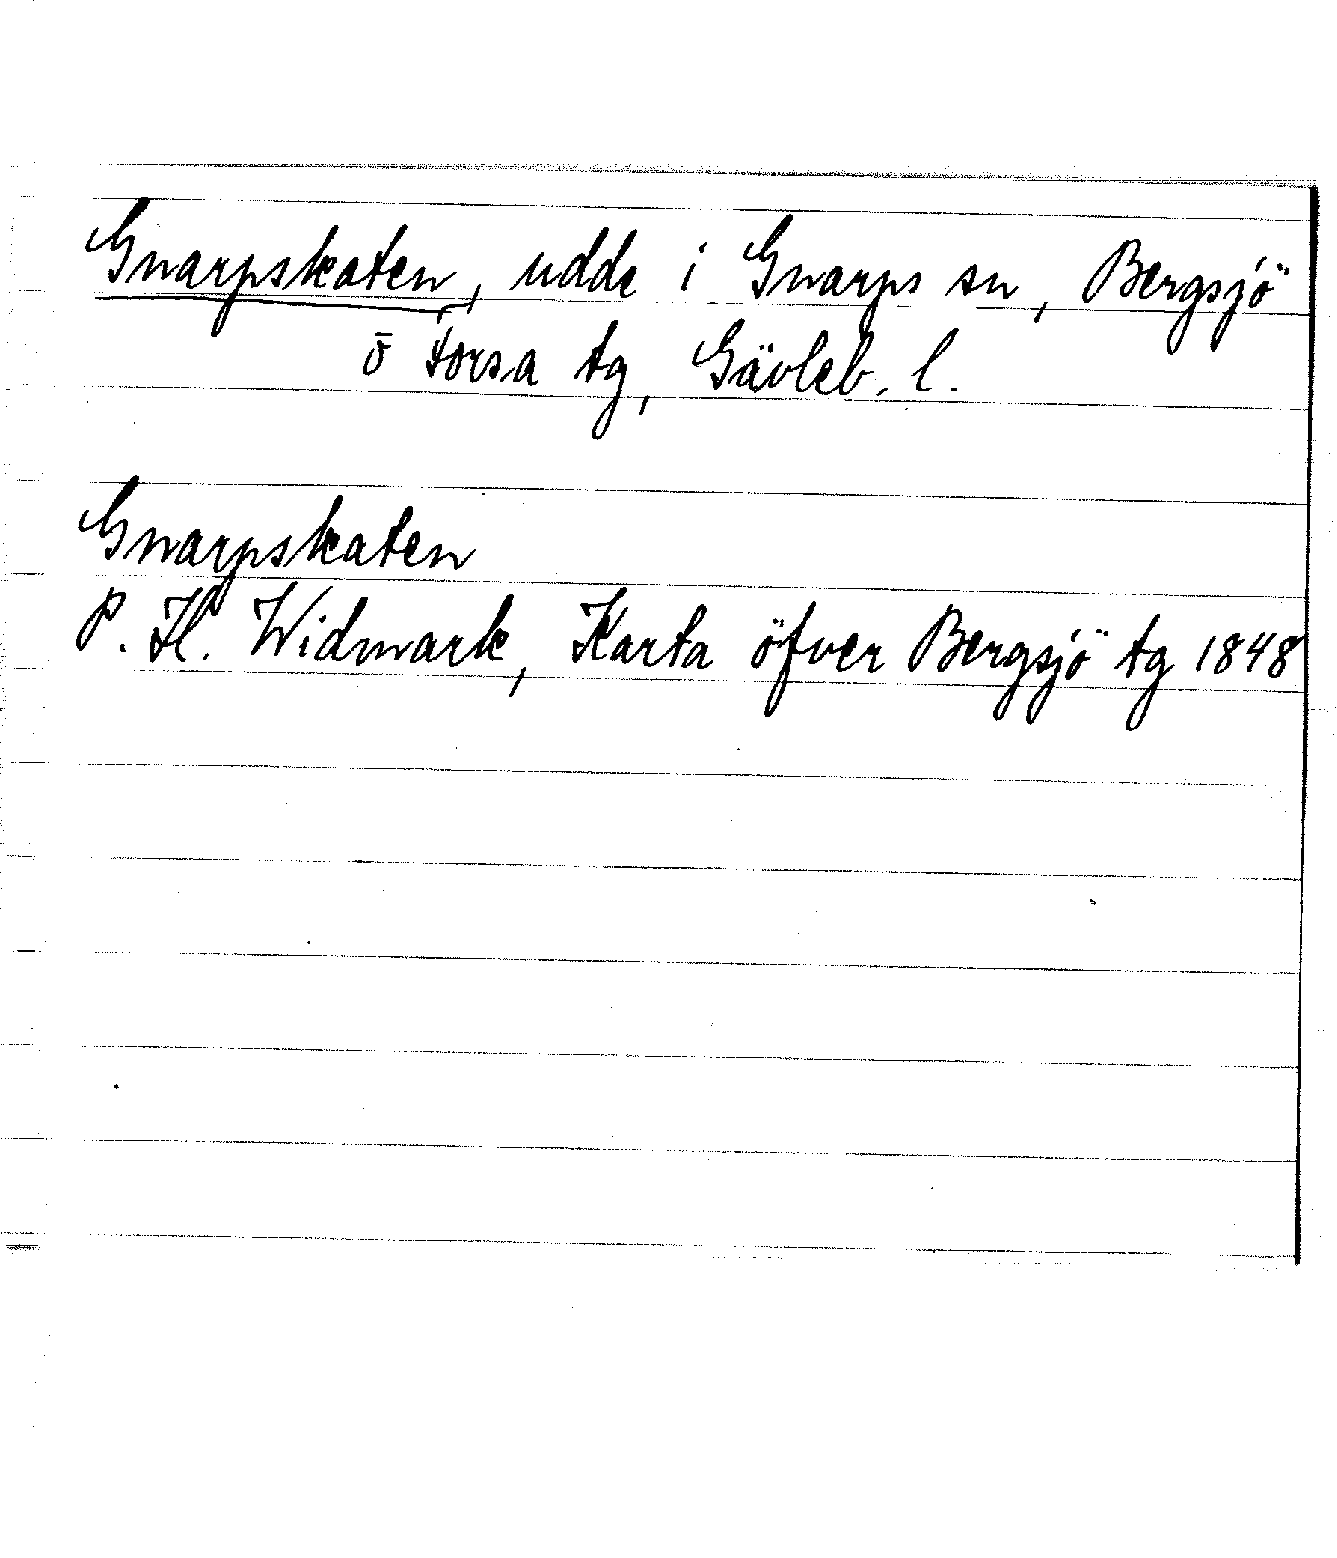 Gnarpskaten, udde i Gnarps sn, Bergsjö
o̅ Forsa tg, Gävleb. l.
Gnarpskaten
P. H. Widmark, Karta öfver Bergsjö tg 1848